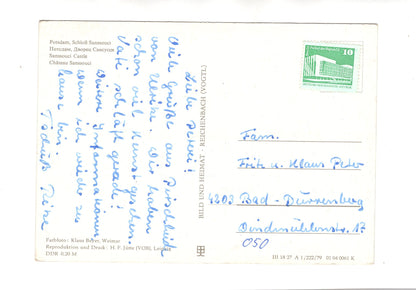 Potsdam, Schloß Sanssouci
Потсдам, Дворец Сансуси
Sanssouci Castle
Château Sanssouci
Liebe zwei!
Viele Grüße aus
von Ulrike. Wir haben
schon viel Kunst gesehen.
Vati schläft gerade!
Weitere Informationen
wenn ich wieder zu
hause bin.
Tschüß
Farbfoto: Klaus Beyer, Weimar
Reproduktion und Druck: H. F. Jütte (VOB), Leipzig
DDR 0,20 M
BILD UND HEIMAT · REICHENBACH (VOGTL)
10
Fam.
Fritz u. Klaus Peter
4203 Bad - Dürrenberg
Windmühlenstr. 17
050
III 18 27 A 1/222/79 01 04 0061 K